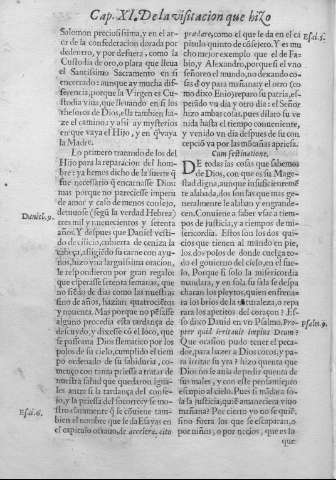 Cap. XI. De la visitacion que hizo
Solomon preciosissima, y en el ar-
ca de la confederacion dorada por
dedentro, y por defuera, como la
Custodia de oro, o plata que lleua
el Santissimo Sacramento en si
encerrado: aunque ay mucha dif-
ferencia, porque la Virgen es Cu-
stodia viua, que lleuando en si los
thesoros de Dios, ella tambien ha-
ze el camino, y assi ay mysterios
en que vaya el Hijo, y en q̃ vaya
la Madre.
Lo primero trazando los del
Hijo para la reparacion del hom-
bre: ya hemos dicho de la suerte q̃
fue necessario q̃ encarnasse Dios:
mas por no parecesse impera
de amor y caso de menos consejo,
detuuose (segũ la verdad Hebrea)
Daniel. 9.
tres mil y nouecientos y setenta
años. Y despues que Daniel vesti-
do de cilicio, cubierta de ceniza la
cabeça, afligiẽdo su carne con ayu-
nos, hizo vna larguissima oracion,
le respondieron por gran regalo:
que esperasse setenta semanas, que
no siẽdo de dias como las nuestras
sino de años, hazian quatrociẽtos
y nouenta. Mas porque no pẽsasse
alguno procedia esta tardança de
descuydo, y dixesse cõ el loco, que
se passeaua Dios flematico por los
polos de su cielo, cumplido el tiem
po ordenado de su sabiduria, co-
mençò con tanta priessa a tratar de
nuestra salud que quedaron igua-
les antes si la tardança del conse-
jo, y la priessa del socorrer y se mo-
Esai. 6.
stro claramente q̃ se cõtiene tam-
bien el nombre que le da Esayas en
el capitulo octauo, de accelera, cito
prædare, como el que le da en el ca
Esai. 5.
pitulo quinto de cõsejero. Y es mu
cho mejor exemplo que el de Fa-
bio, y Alexandro, porque si el vno
señoreo el mundo, no dexando co-
sas d̃ oy para mañana, y el otro (co
mo dixo Enio) reparo su patria, es-
perãdo vn dia y otro dia: el Señor
hizo ambas cosas, pues dilato su ve
nida hasta el tiempo conueniente,
y venido vn dia despues de su con-
cepciõ va por las mõtañas apriessa.
Cum festinatione.
DE todas las cosas que sabemos
de Dios, con que es su Mage-
stad digna, aunque insuficientemẽ
te alabada, dos son las que mas ge-
neralmente le alaban y engrande-
cen. Conuiene a saber vsar a tiem-
pos de justicia, y a tiempos de mi-
sericordia. Estos son los dos qui-
cios que tienen al mũdo en pie,
los dos polos de donde cuelga to-
do el gouierno del cielo, en el sue-
lo. Porque si solo la misericordia
mandara, y en sola su sala se despa
charan los pleytos, quien enfrena-
ra los brios de la naturaleza, o repa
rara los apetitos del coraçon? Es-
so dixo Dauid en vn Psalmo. Pro-
Psalm. 9.
pter quid irritauit impius Deum?
Que ocasion pudo tener el peca-
dor, para lazer a Dios cocos, y pa-
ra irritar su yra? hizo quenta que
Dios no le auia de pedir quenta de
sus males, y con este pensamiento
escupio al cielo. Pues si mãdara so-
la la justicia, quiẽ amaneciera viuo
mañana? Por cierto yo no se quiẽ,
sino fuera los que se escaparan, o
por niños, o por necios, que es lo
que